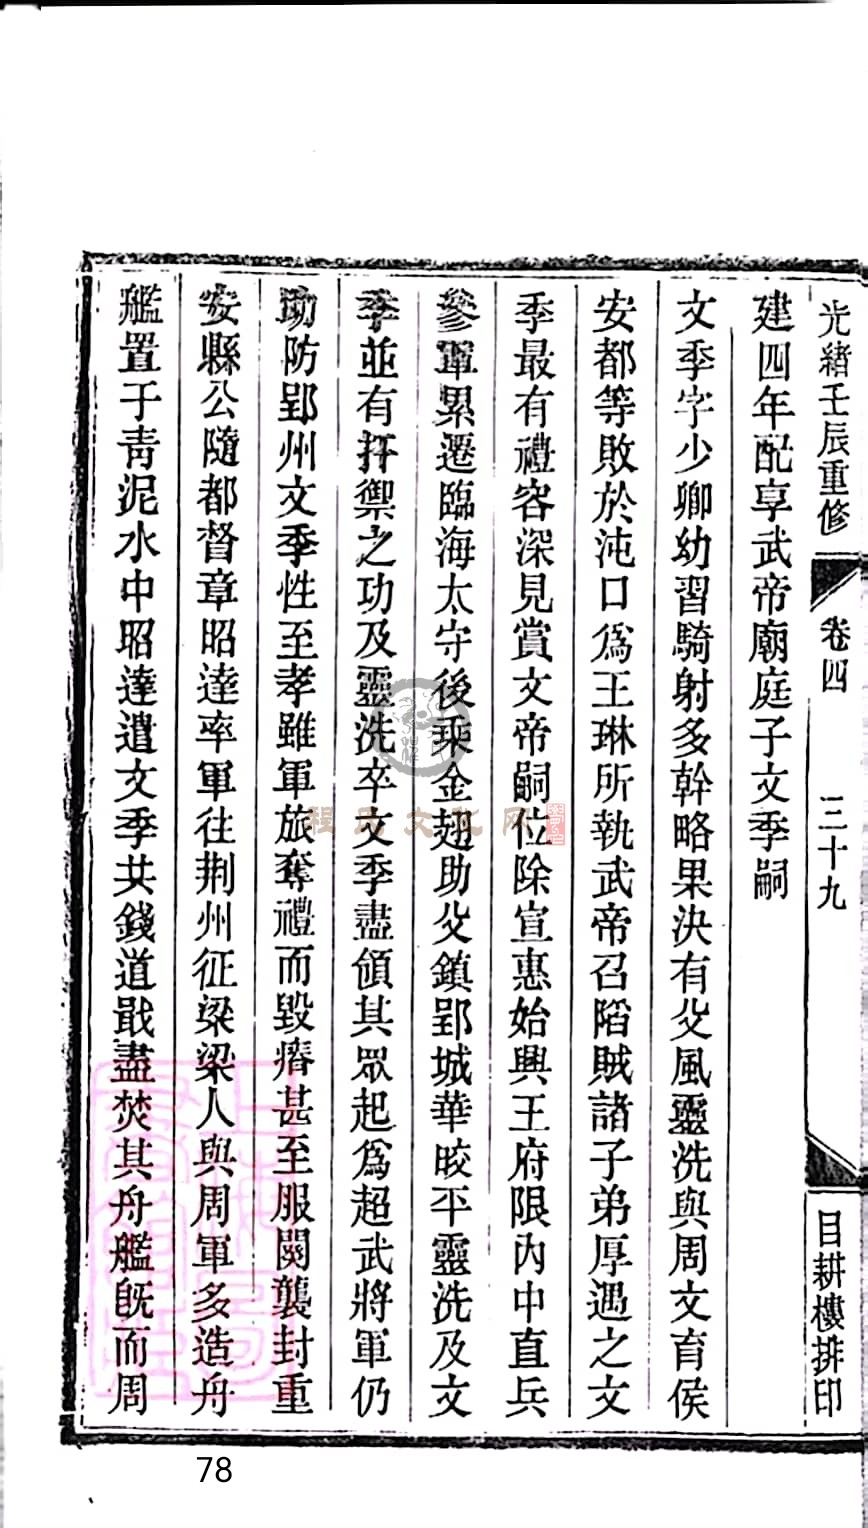 光緒壬辰重修 卷四 三十九 目耕樓排印
建四年配享武帝廟庭子文季嗣
文季字少卿幼習騎射多幹略果決有父風靈洗與周文育侯
安都等敗於沌口爲王琳所執武帝召陷賊諸子弟厚遇之文
季最有禮容深見賞文帝嗣位除宣惠始興王府限內中直兵
參軍累遷臨海太守後乘金翅助父鎮郢城華皎平靈洗及文
季並有扞禦之功及靈洗卒文季盡領其眾起爲超武將軍仍
助防郢州文季性至孝雖軍旅奪禮而毀瘠甚至服闋襲封重
安縣公隨都督章昭達率軍往荆州征梁梁人與周軍多造舟
艦置于青泥水中昭達遣文季共錢道戢盡焚其舟艦既而周
程氏文化网
78